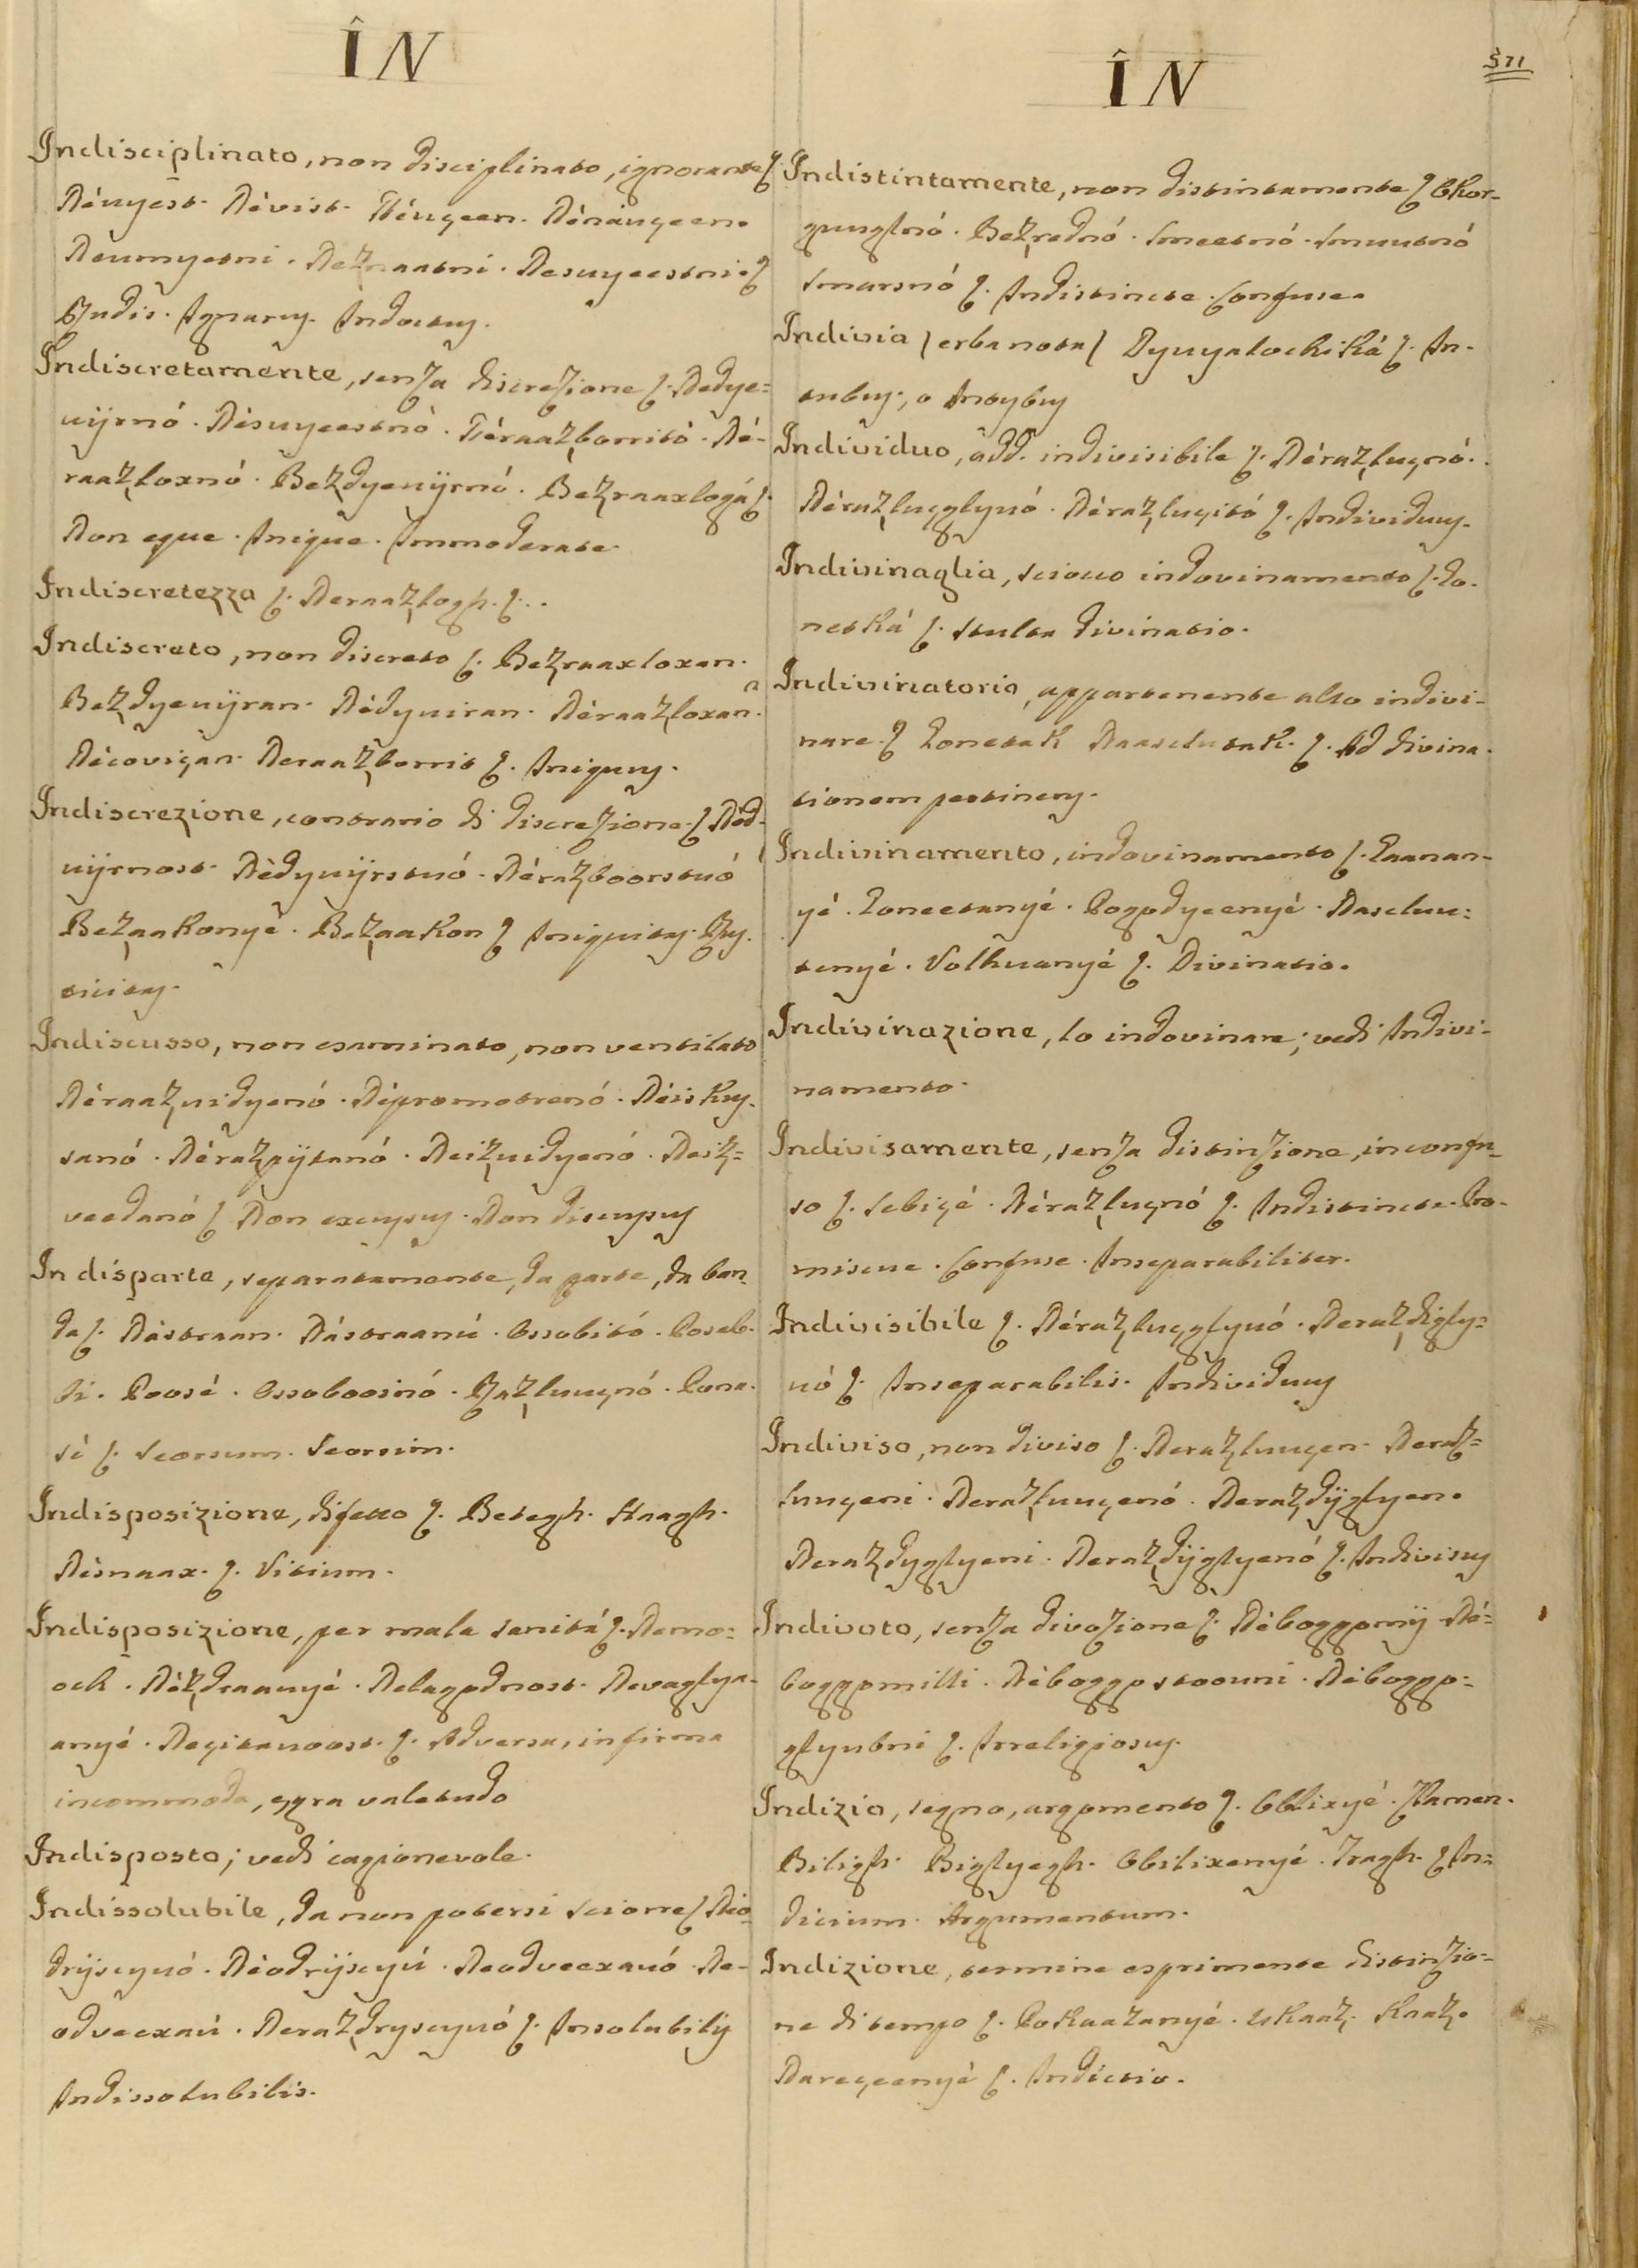 ÎN
Indisciplinato, non disciplinato, ignorante ʃ.
Néuyest. Névist. Néuçeen. Nénáuçeen.
Neumyetni. Neznaatni. Nesuyeestni. ʃ
Rudis. Ignarus. Indoctus.
Indiscretamente, senza discrezione ʃ. Nedye=
uijrnó. Nésuyeestnó. Néraazborritó. Né-
raazloxnó. Bezdyeuijrnó. Bezraaxlogá ʃ.
Non eque. Inique. Immoderate.
Indiscretezza ʃ. Neraazlogh. ʃ..
Indiscreto, non discreto ʃ. Bezraaxloxan.
Bezdyeuijran. Nédyuiran. Néraazloxan.
Nécoviçan. Neraazborrit ʃ. Iniquus.
Indiscrezione, contrario di discrezione. ʃ Néd-
uijrnost. Nèdyuijrstuó. Nérazboorstuó
Bezaakonyé. Bezaakon ʃ Iniquitas. Rus-
ticitas.
Indiscusso, non esaminato, non ventilato
Néraazuidyenó. Népromotrenó. Néiskus-
sanó. Nérazpijtanó. Neizuidyenó. Neiz=
veedanó ʃ Non excussus. Non discussus
In disparte, separatamente, da parte, da ban-
da ʃ. Nástraan. Nástraanú. Ossobitó. Poseb-
ni. Poosé. Ossoboosinó. Razluuçnó. Pona-
sé ʃ. Seorsum. Seorsim.
Indisposizione, difetto ʃ. Betegh. Haagh.
Nésnaax. ʃ. Vitium.
Indisposizione, per mala sanitá ʃ. Nemo=
och. Nézdraauyé. Nelagodnost. Nevaglya-
anyé. Neçitauoost. ʃ. Adversa, infirma
incommoda, egra valetudo
Indisposto; vedi cagionevole.
Indissolubile, da non potersi sciorre ʃ Neo-
drijscyuó. Néodrijscyú. Neodveexauó. Ne-
odveexaú. Nerazdryscyuó ʃ. Insolubilis
Indissolubilis.
ÎN
571
Indistintamente, non distintamente ʃ Ohor-
gunglnó. Bezrednó. Smeetnó. Smuutnó
Smarsnó ʃ. Indistincte. Confuse.
Indivia (erba nota) Dyuyalochiká ʃ. In-
tubus, o Intybus
Individuo, add. indivisibile ʃ. Nérazluçnó.
Nérazluçglyuó. Nérazluçitó ʃ. Individuus.
Indivinaglia, sciocco indovinamento ʃ. Lo-
netká ʃ. Stulta divinatio.
Indivinatorio, appartenente allo indivi-
nare. ʃ Lonetak Naasclutak. ʃ. Ad divina-
tionem pertinens.
Indivinamento, indovinamento ʃ. Gaanan-
yé. Loneetanyé. Pogodyeenyé. Nascluu=
tenyé. Volhuanyé ʃ. Divinatio.
Indivinazione, lo indovinare; vedi Indivi-
namento.
Indivisamente, senza distinzione, in confu-
so ʃ. Sebiçé. Nérazluçnó ʃ. Indistincte. Pro-
miscue. Confuse. Inseparabiliter.
Indivisibile ʃ. Nérazluçglyuó. Nerazdigly=
uó ʃ. Inseparabilis. Individuus
Indiviso, non diviso ʃ. Nerazluuçen. Neraz=
luuçeni. Nerazluuçenó. Nerazdijglyen.
Nerazdyglyeni. Nerazdijglyenó ʃ. Indivisus
Indivoto, senza divozione ʃ. Néboggomij Né-
boggomilli. Néboggostoouni. Néboggo=
glyubni ʃ. Irreligiosus.
Indizio, segno, argomento ʃ. Oblixyé. Zlamen.
Biligh. Biglyegh. Obilixenyé. Tragh. ʃ In=
dicium. Argumentum.
Indizione, termine esprimente distinzio=
ne di tempo ʃ. Pokaazanyé. Ukaaz. Kaaz.
Nareçeenyé ʃ. Indictio.